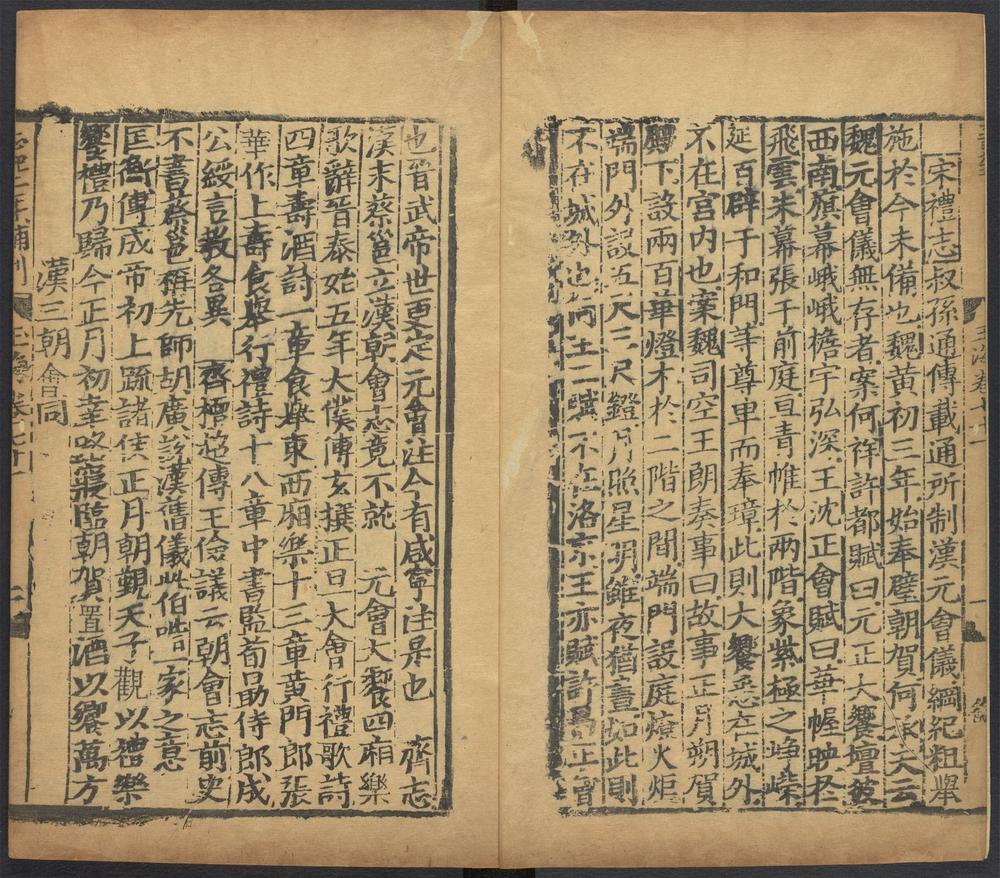 宋禮志叔孫通傳載通所制漢元會儀綱紀粗舉
施於今未備也魏黃初三年始奉璧朝賀何承天云
魏元會儀無存者案何禎許都賦曰元正大饗壇彼
西南旗幕峨峨檐宇弘深王沈正會賦曰華幄映於
飛雲朱幕張于前庭亘青帷於兩階象紫極之崢嶸
延百辟于和門等尊卑而奉璋此則大饗悉在城外
不在宮內也案魏司空王朗奏事曰故事正月朔賀
下設兩百華燈木於二階之間端門設庭燎火炬
端門外設五尺三尺鐙月照星明雖夜猶晝如此則
不在城外也何王二賦不在洛京王亦賦許昌正會
也晉武帝世更定元會注今有咸寧注是也　齊志
漢末蔡邕立漢朝會志竟不就　元會大饗四廂樂
歌辭晉泰始五年大僕傅玄撰正旦大會行禮歌詩
四章壽酒詩一章食舉東西廂樂十三章黃門郎張
華作上壽食舉行禮詩十八章中書監荀勗侍郎成
公綏言數各異　齊檀超傳王儉議云朝會志前史
不書蔡邕稱先師胡廣說漢舊儀此伯喈一家之意
匡衡傳成帝初上疏諸侯正月朝覲天子觀以禮樂
饗禮乃歸今正月初幸路寢臨朝賀置酒以饗萬方
漢三朝會同